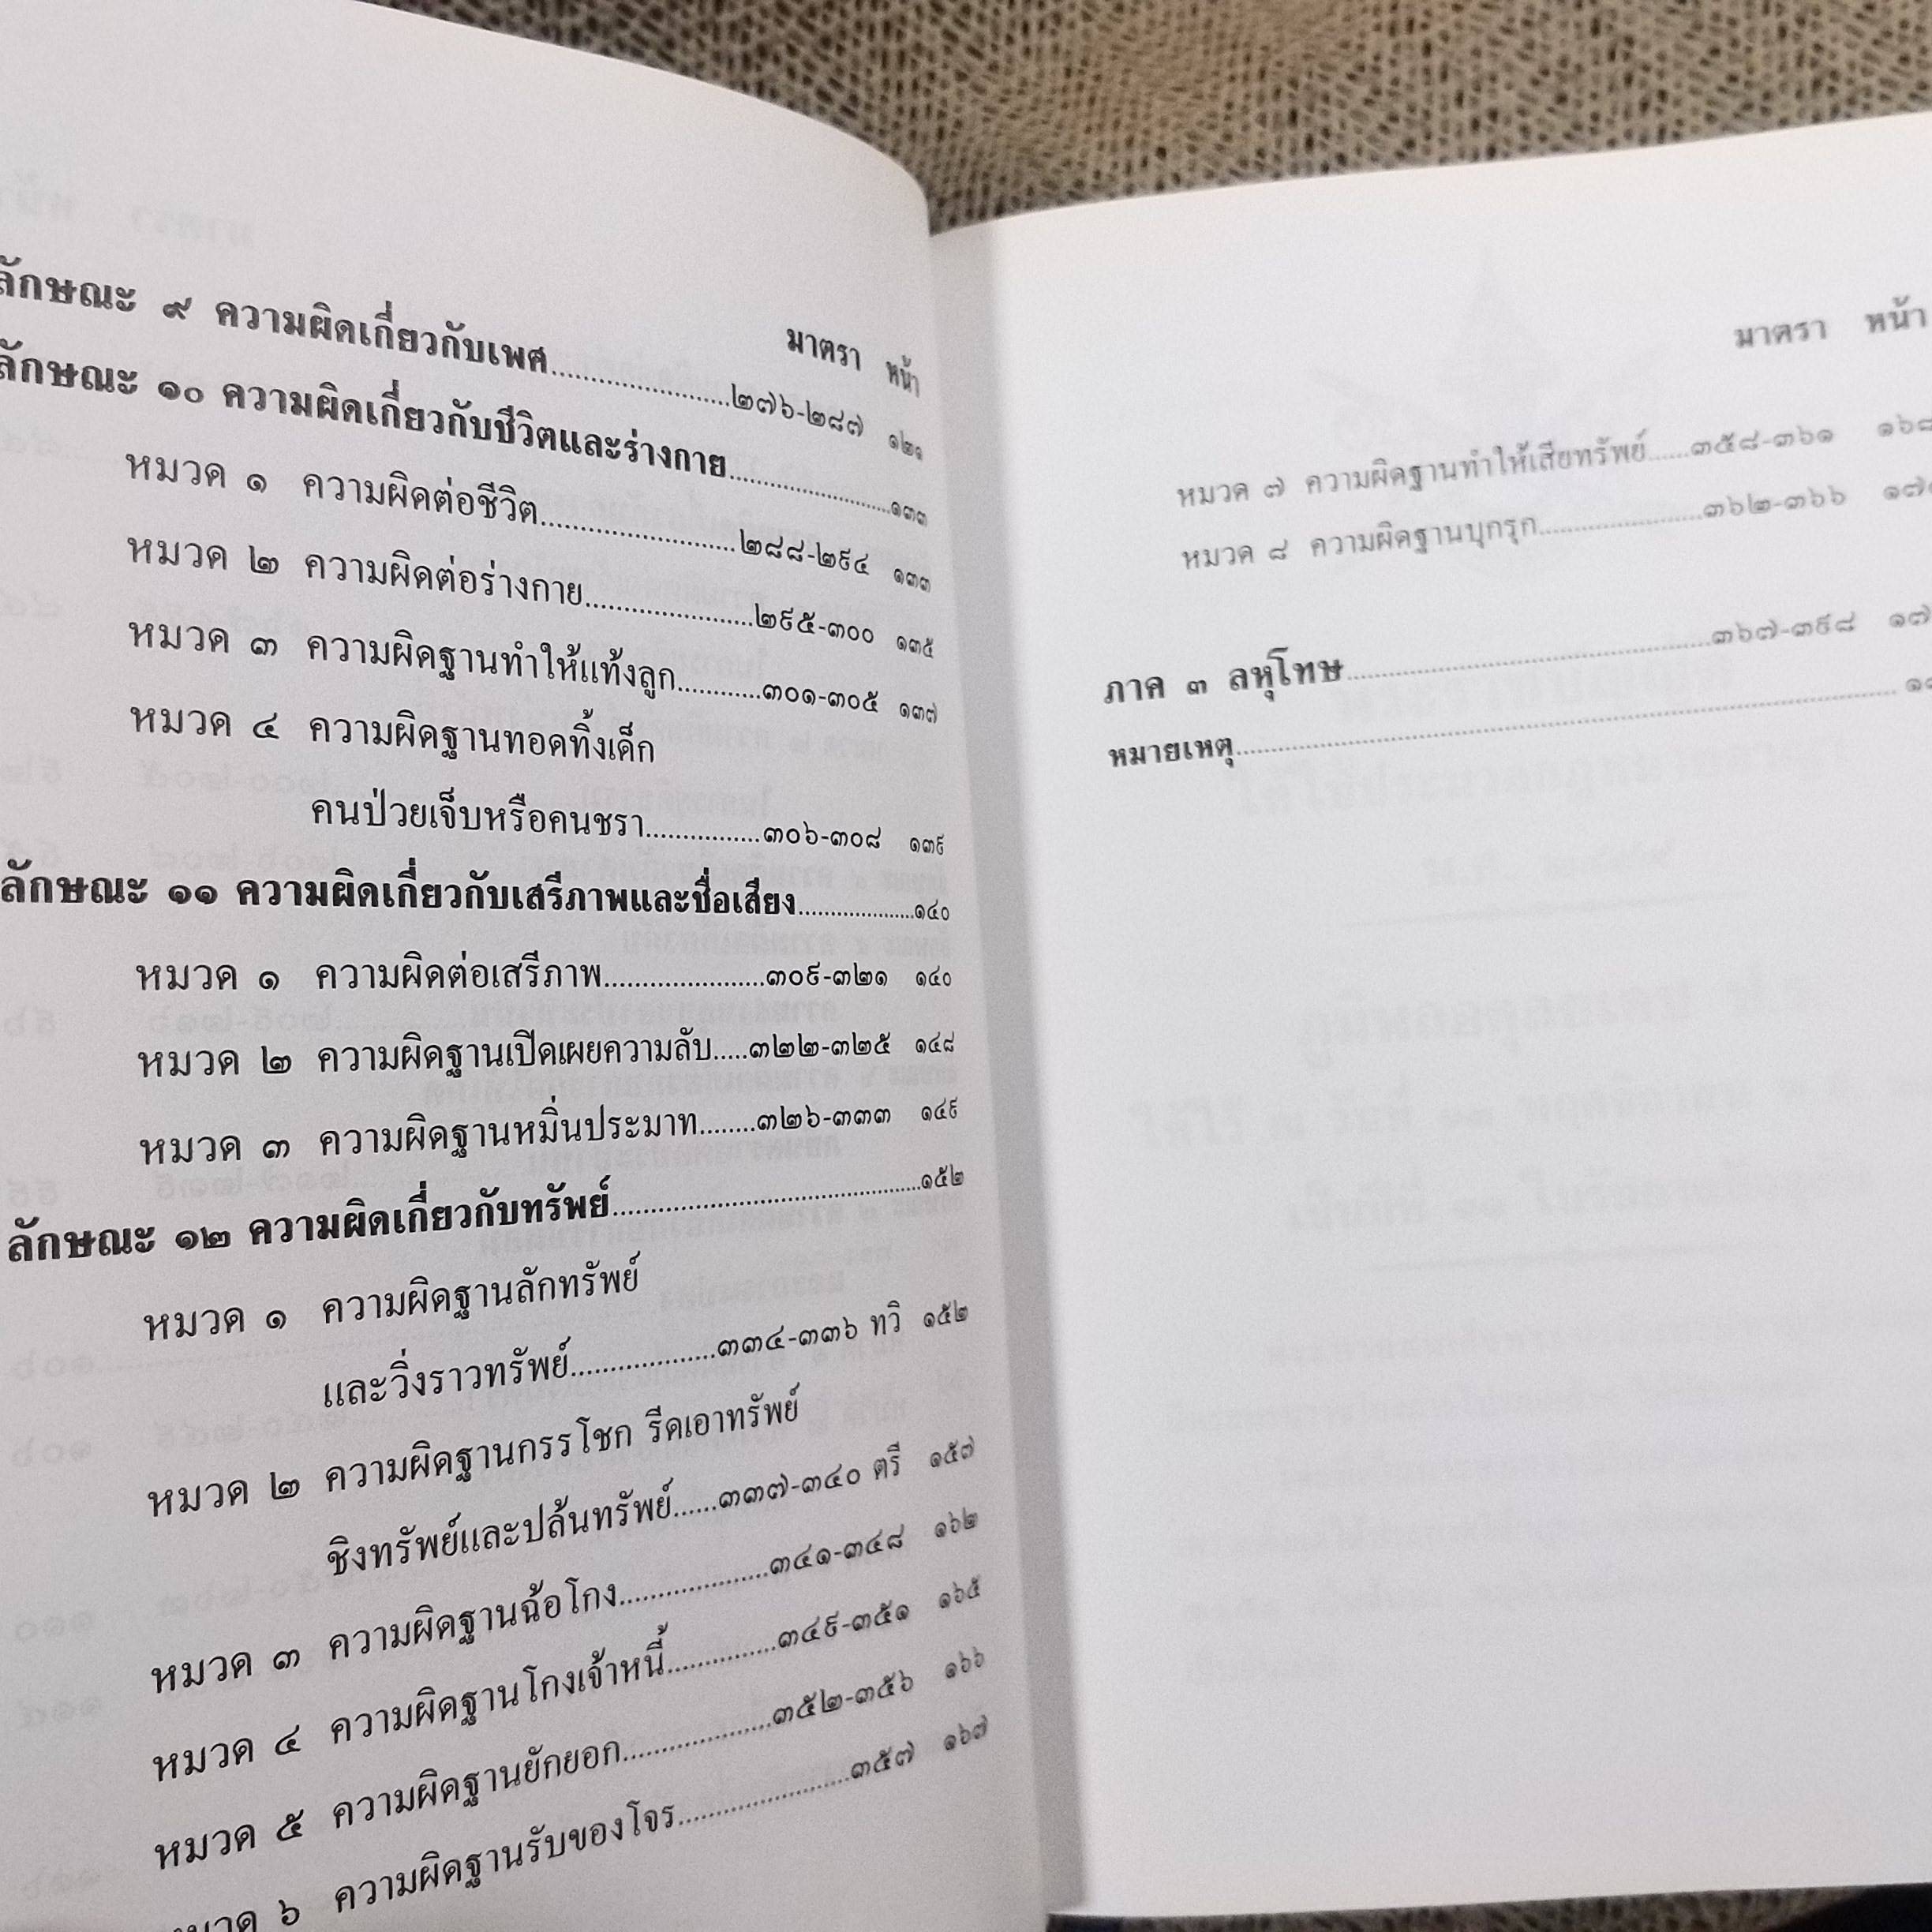 มาตรา หน้า
ลักษณะ ๙ ความผิดเกี่ยวกับเพศ....................๒๗๖-๒๘๗ ๑๒๑
ลักษณะ ๑๐ ความผิดเกี่ยวกับชีวิตและร่างกาย....................๑๓๓
หมวด ๑ ความผิดต่อชีวิต....................๒๘๘-๒๙๔ ๑๓๓
หมวด ๒ ความผิดต่อร่างกาย....................๒๙๕-๓๐๐ ๑๓๕
หมวด ๓ ความผิดฐานทำให้แท้งลูก............๓๐๑-๓๐๕ ๑๓๗
หมวด ๔ ความผิดฐานทอดทิ้งเด็ก
คนป่วยเจ็บหรือคนชรา...............๓๐๖-๓๐๘ ๑๓๙
ลักษณะ ๑๑ ความผิดเกี่ยวกับเสรีภาพและชื่อเสียง....................๑๔๐
หมวด ๑ ความผิดต่อเสรีภาพ......................๓๐๙-๓๒๑ ๑๔๐
หมวด ๒ ความผิดฐานเปิดเผยความลับ.....๓๒๒-๓๒๕ ๑๔๘
หมวด ๓ ความผิดฐานหมิ่นประมาท........๓๒๖-๓๓๓ ๑๔๙
ลักษณะ ๑๒ ความผิดเกี่ยวกับทรัพย์........................................๑๕๒
หมวด ๑ ความผิดฐานลักทรัพย์
และวิ่งราวทรัพย์...................๓๓๔-๓๓๖ ทวิ ๑๕๒
หมวด ๒ ความผิดฐานกรรโชก รีดเอาทรัพย์
ชิงทรัพย์และปล้นทรัพย์......๓๓๗-๓๔๐ ตรี ๑๕๗
หมวด ๓ ความผิดฐานฉ้อโกง....................๓๔๑-๓๔๘ ๑๖๒
หมวด ๔ ความผิดฐานโกงเจ้าหนี้...............๓๔๙-๓๕๑ ๑๖๕
หมวด ๕ ความผิดฐานยักยอก....................๓๕๒-๓๕๖ ๑๖๖
หมวด ๖ ความผิดฐานรับของโจร.......................๓๕๗ ๑๖๗
มาตรา หน้า
หมวด ๗ ความผิดฐานทำให้เสียทรัพย์......๓๕๘-๓๖๑ ๑๖๘
หมวด ๘ ความผิดฐานบุกรุก......................๓๖๒-๓๖๖
ภาค ๓ ลหุโทษ................................................๓๖๗-๓๙๘
หมายเหตุ................................................................